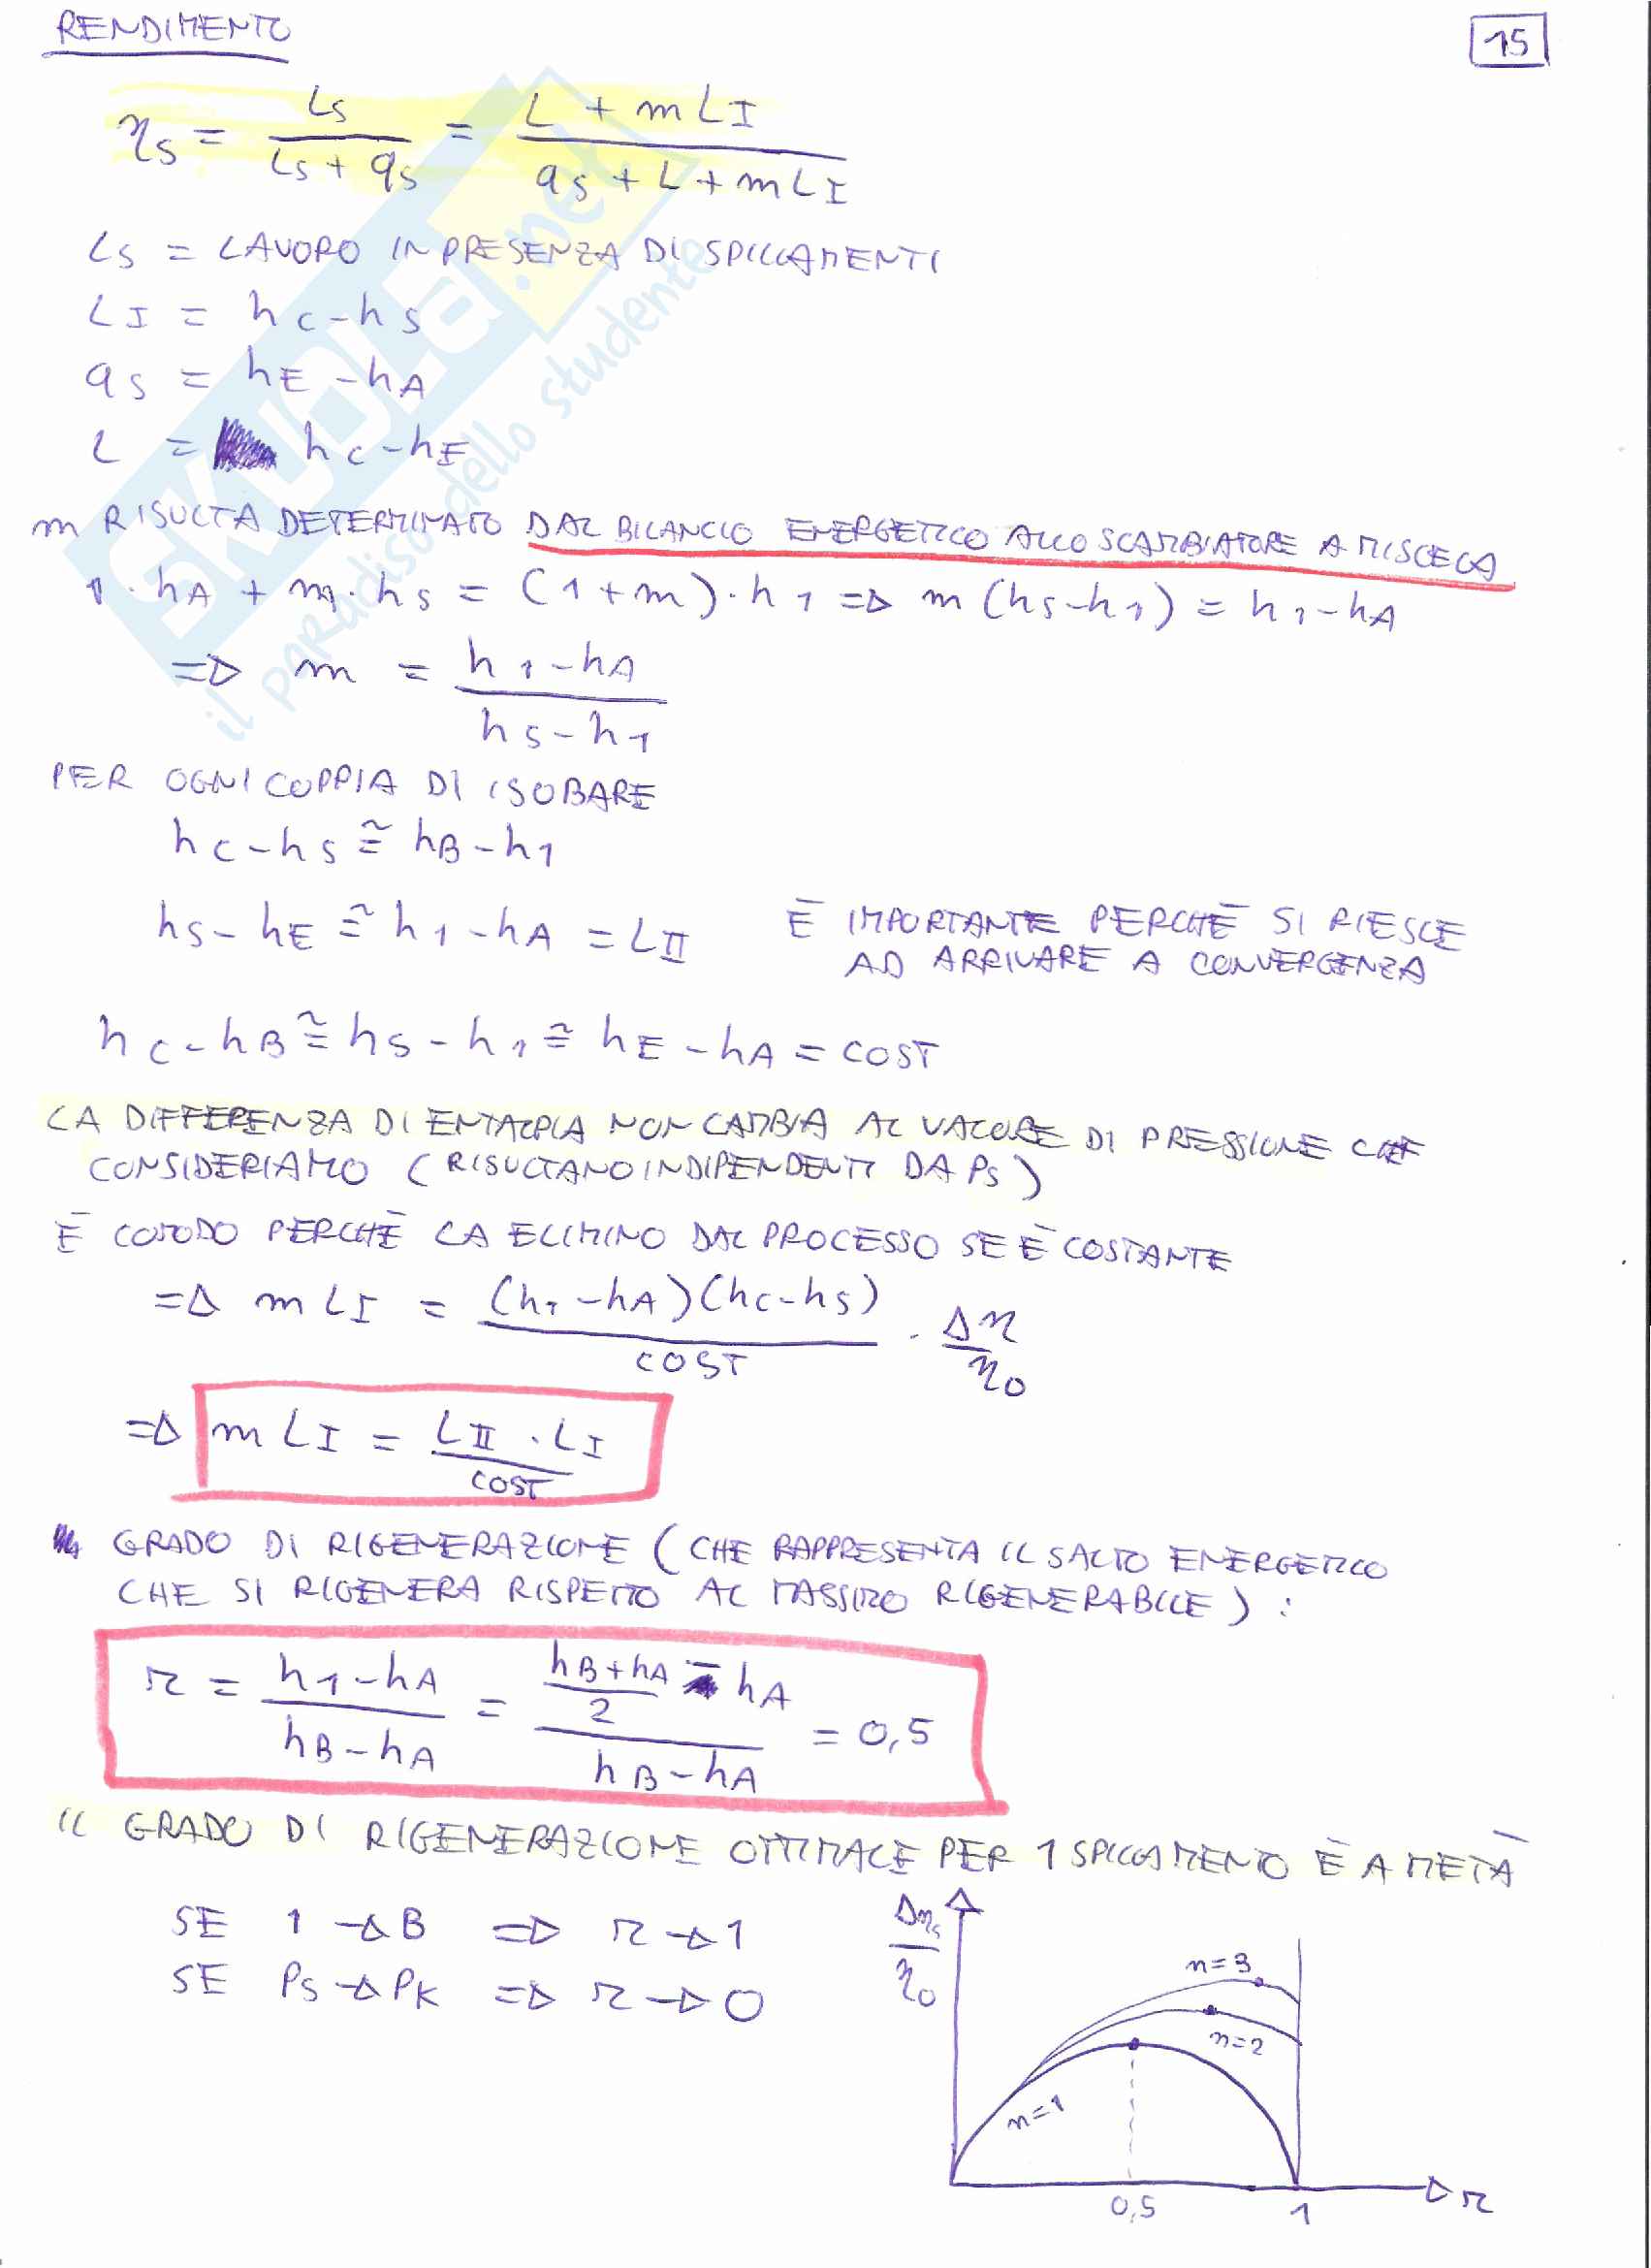 RENDIMENTO
15
ηs = Ls / (Ls + qs) = (L + m LI) / (qs + L + m LI)
Ls = LAVORO IN PRESENZA DI SPILLAMENTI
LI = hC - hS
qs = hE - hA
L = hC - hE
m RISULTA DETERMINATO DAL BILANCIO ENERGETICO ALLO SCAMBIATORE A MISCELA
1 · hA + m · hS = (1 + m) · h1 => m (hS - h1) = h1 - hA
=> m = (h1 - hA) / (hS - h1)
PER OGNI COPPIA DI ISOBARE
hC - hS ≅ hB - h1
hS - hE ≅ h1 - hA = LII
È IMPORTANTE PERCHÈ SI RIESCE
AD ARRIVARE A CONVERGENZA
hC - hB ≅ hS - h1 ≅ hE - hA = COST
LA DIFFERENZA DI ENTALPIA NON CAMBIA AL VALORE DI PRESSIONE CHE
CONSIDERIAMO (RISULTANO INDIPENDENTI DA PS)
È COMODO PERCHÈ LA ELIMINO DAL PROCESSO SE È COSTANTE
=> m LI = (h1 - hA)(hC - hS) / COST · Δη / η0
=> m LI = LII · LI / COST
GRADO DI RIGENERAZIONE (CHE RAPPRESENTA IL SALTO ENERGETICO
CHE SI RIGENERA RISPETTO AL MASSIMO RIGENERABILE) :
r = (h1 - hA) / (hB - hA) = ((hB + hA) / 2 - hA) / (hB - hA) = 0,5
IL GRADO DI RIGENERAZIONE OTTIMALE PER 1 SPILLAMENTO È A METÀ
SE 1 → B => r → 1
SE PS → PK => r → 0
Δηs / η0
n=3
n=2
n=1
0,5
1
r
SKUOLA.net
il paradiso dello studente